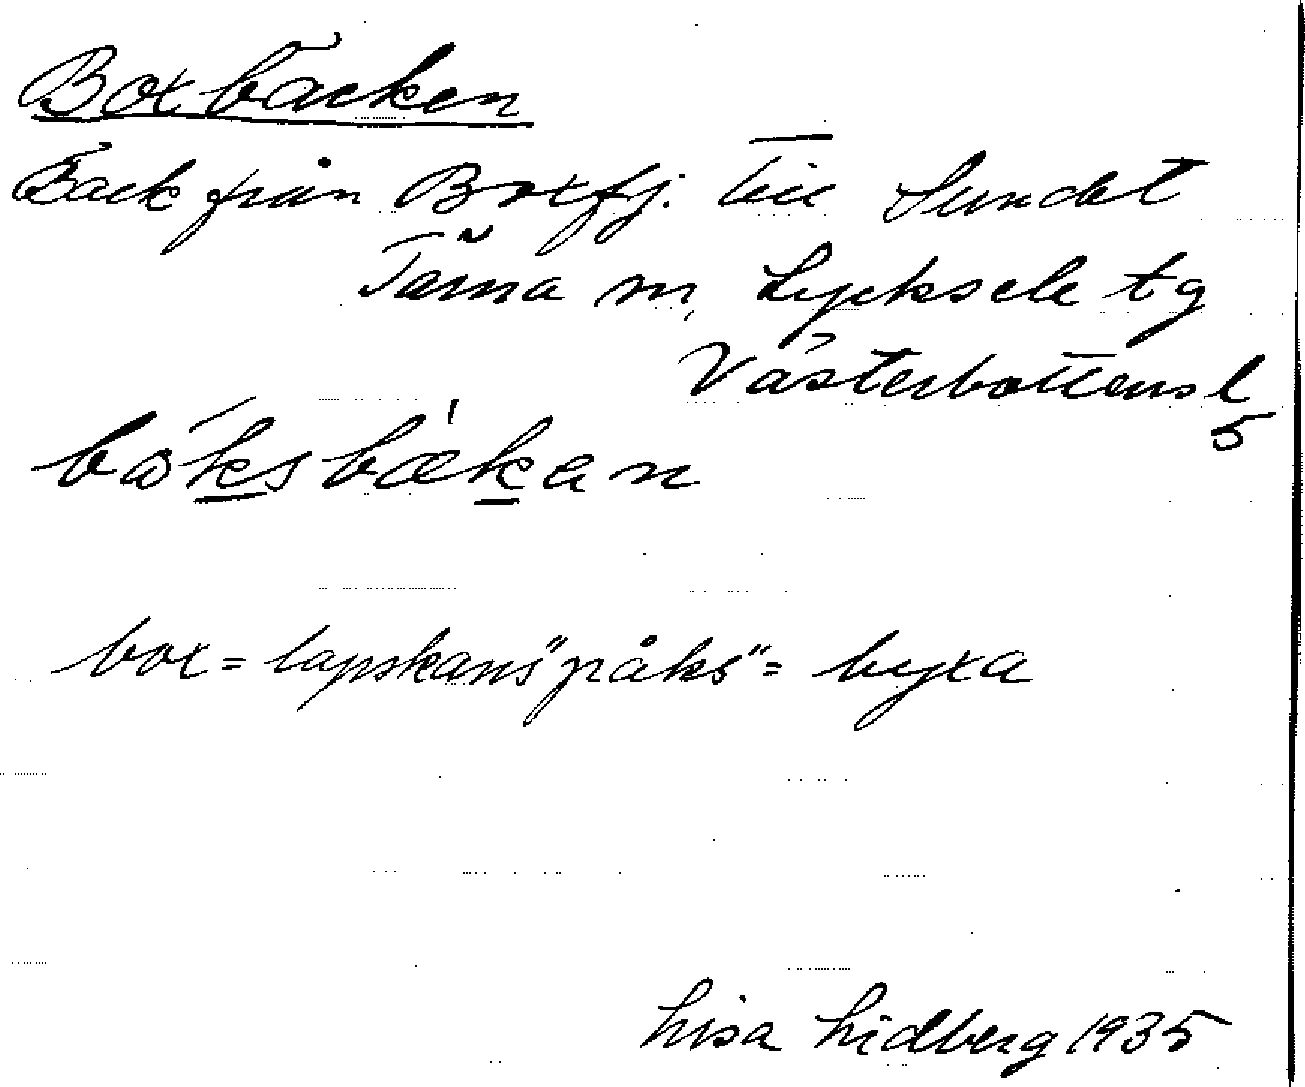 Boxbäcken
Bäck från Boxfj. till Sundet
Tärna sn, Lycksele tg
Västerbottens l
5
båksbækan
box = lapskans "påks" = byxa
Lisa Lidberg 1935